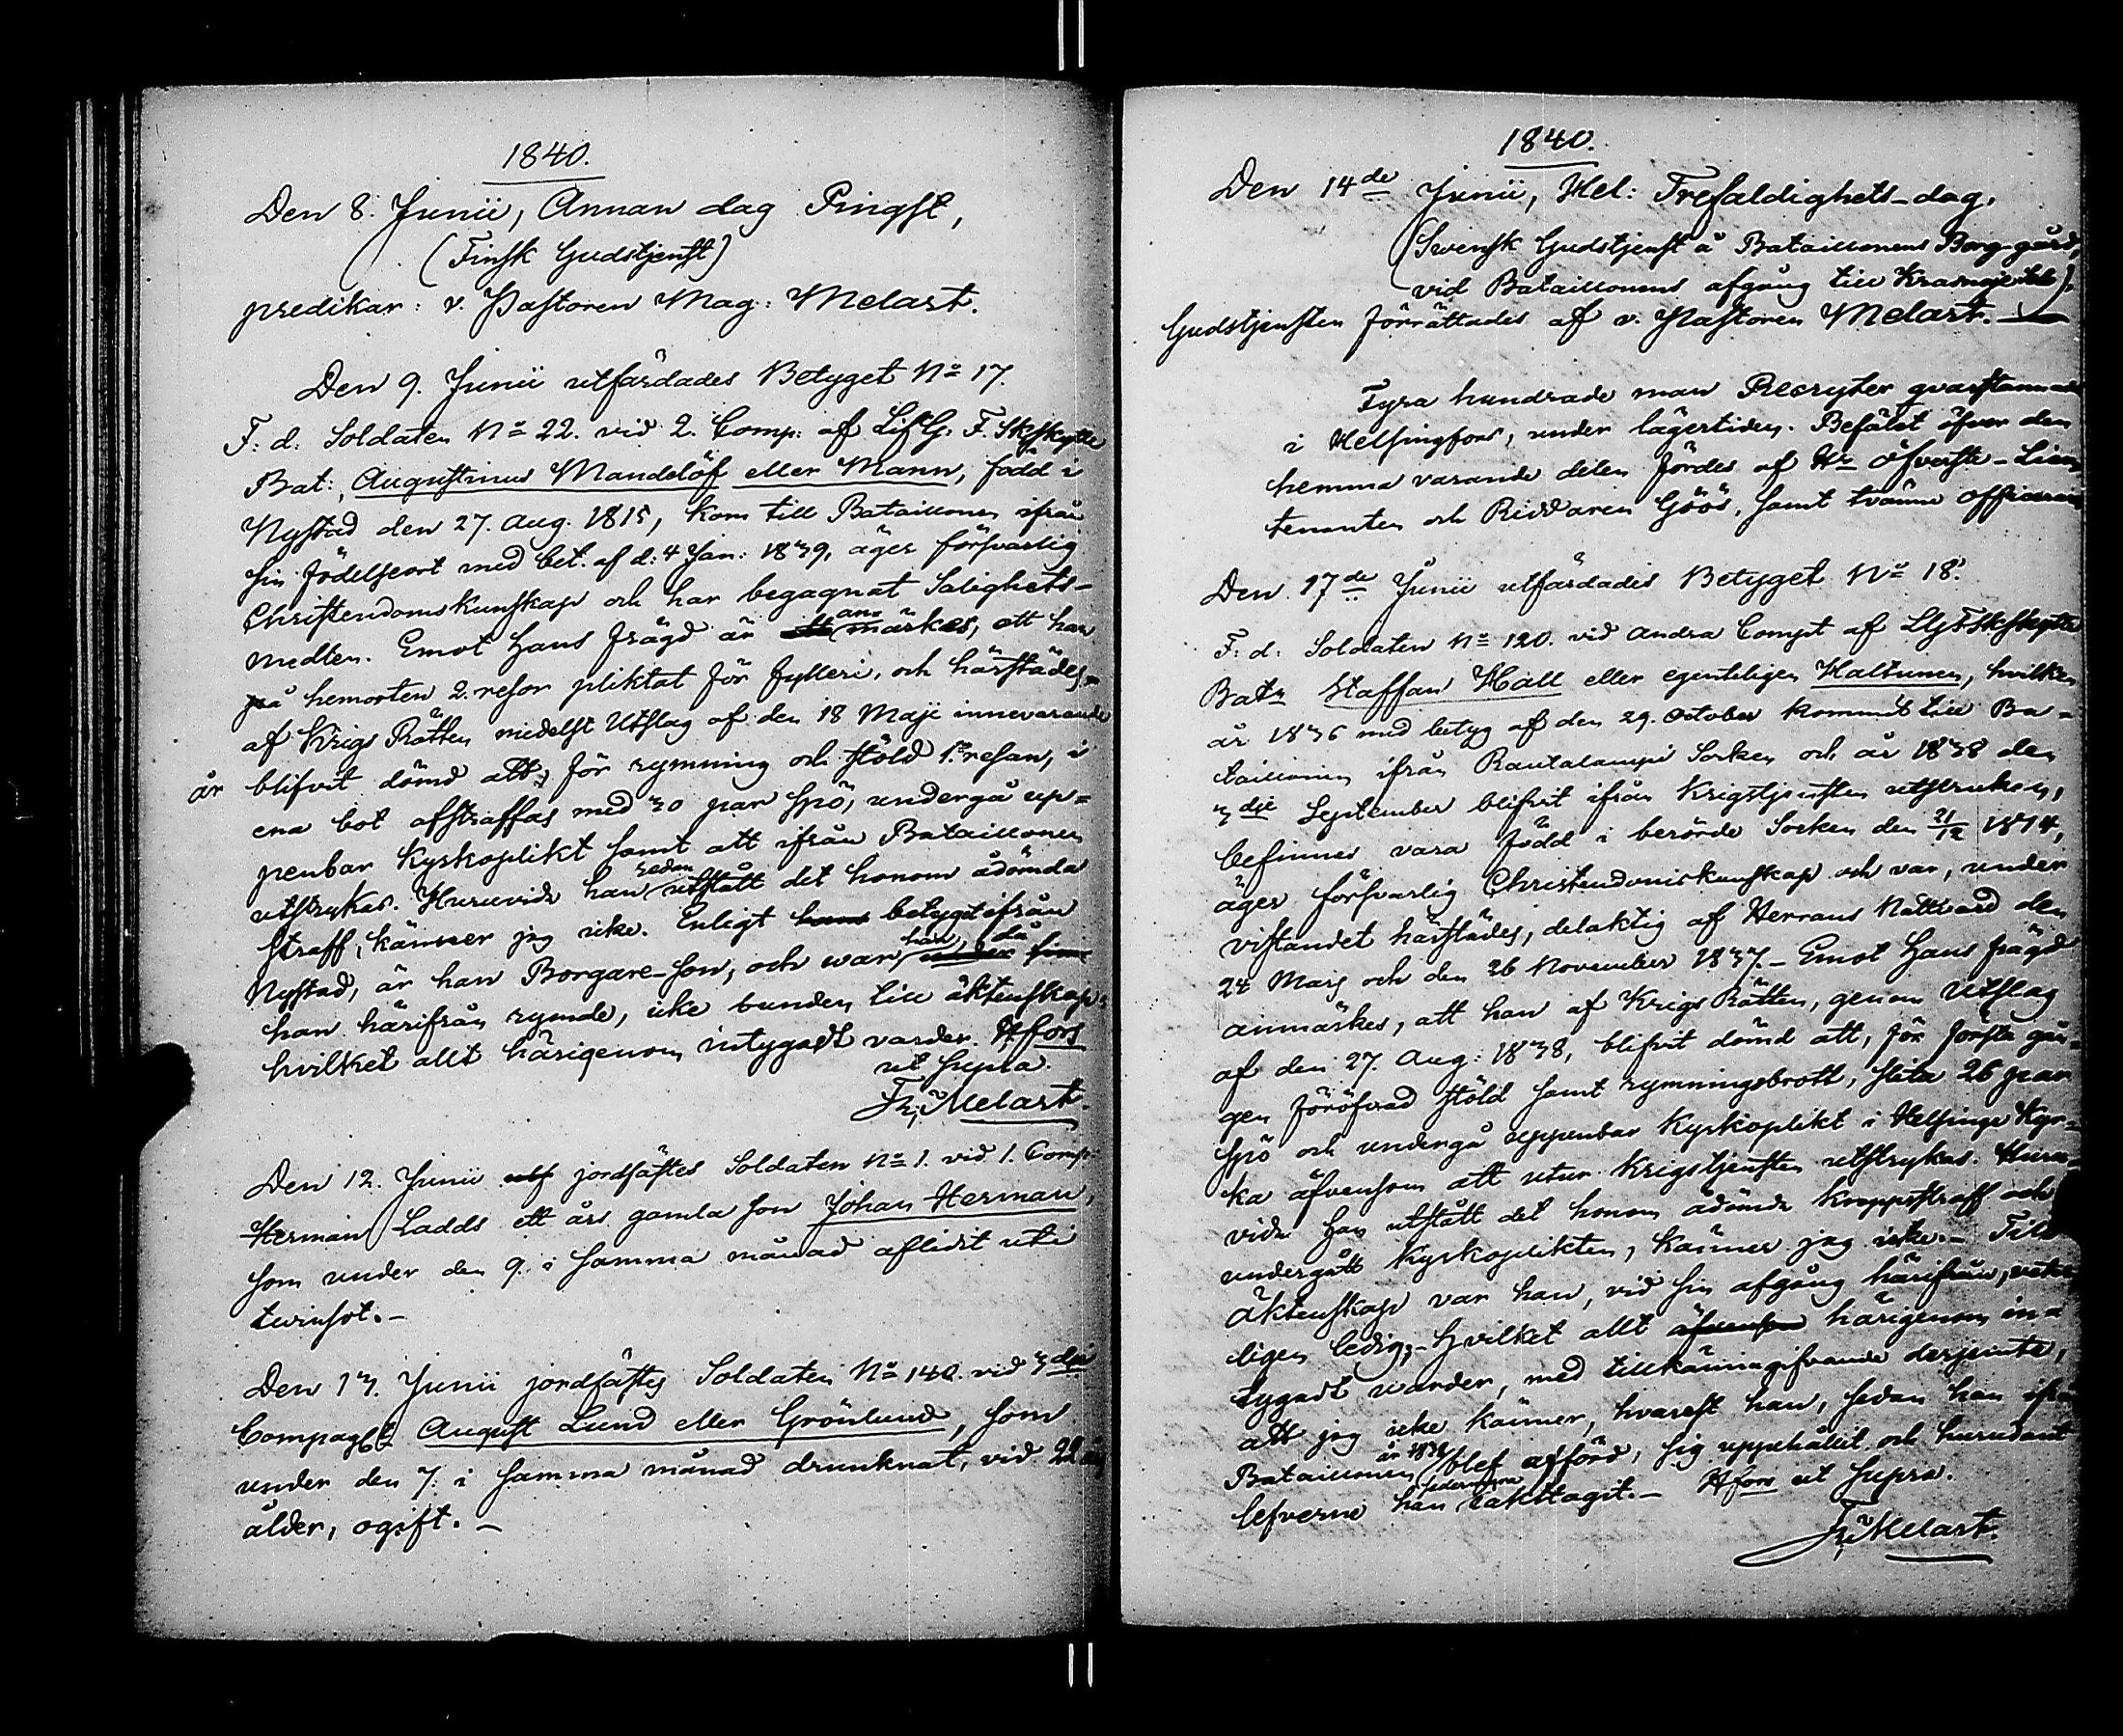 1840.
Den 8. Junii, Annan dag Pingst,
(Finsk Gudstjenst)
predikar: v. Pastoren Mag: Melart.
Den 9. Junii utfärdades Betyget No 17.
F: d: Soldaten No 22. vid 2. Comp: af LifG. F. Skfskytte
Bat: Augustinus Mandelöf eller Mann, född i
Nystad den 27. Aug. 1815, kom till Bataillonen ifrån
sin födelseort med bet. af d: 4 Jan: 1839, äger försvarlig
Christendomskunskap och har begagnat Salighets-
medlen. Emot Hans frägd är anmärkes, att han
på hemorten 2. resor pliktat för fylleri, och härstädes
af Krigs Rätten medelst Utslag af den 18 Maji innevarande
år blifvit dömd att, för rymning och stöld 1. resan, i
ena bot afstraffas med 30 par spö, undergå up-
penbar Kyrkoplikt samt att ifrån Bataillonen
utstrykas. Huruvida han redan utstått det honom ådömda
straff, känner jag icke. Enligt hans betyget ifrån
Nystad, är han Borgare-son, och war, han, då
han härifrån rymde, icke bunden till äktenskap;
hvilket allt härigenom intygadt varder. H:fors
ut supra.
Fr. Melart.
Den 12. Junii jordfästes Soldaten No 1. vid 1. Comp:
Herman Ladds ett års gamla son Johan Herman,
som under den 9. i samma månad aflidit uti
twinsot.-
Den 13. Junii jordfästes Soldaten No 140. vid 3dje
Compagt August Lund eller Grönlund, som
under den 7. i samma månad drunknat, vid 22 års
ålder, ogift.-
1840.
Den 14de Junii, Hel: Trefaldighets-dag,
(Swensk Gudstjenst å Bataillonens Borg-gård,
vid Bataillonens afgång till Krasnoje Selo).
Gudstjensten förrättades af v. Pastoren Melart.
Fyra hundrade man Recryter qvarstannade
i Helsingfors, under lägertiden. Befälet öfver den
hemma varande delen fördes af Hr Öfverste-Lieu-
tenanten och Riddaren Göös, samt tvänne officerare
Den 17de Junii utfärdades Betyget No 18.
F: d: Soldaten No 120. vid andra Compt af LGFSkfskytte
Batn Staffan Hall eller egenteligen Haltunen, hvilken
år 1836 med betyg af den 29. October kommit till Ba-
taillonen ifrån Rautalampi Socken och år 1838 den
3dje September blifvit ifrån Krigstjensten utstruken,
befinnes vara född i berörde Socken den 21/12 1814,
äger försvarlig Christendomskunskap och var, under
vistandet härstädes, delaktig af Herrans Nattvard den
24 Mars och den 26 November 1837.- Emot Hans frägd
anmärkes, att han af Krigs Rätten, genom Utslag
af den 27. Aug: 1838, blifvit dömd att, för första gån-
gen föröfvad stöld samt rymningsbrott, slita 26 par
spö och undergå uppenbar Kyrkoplikt i Helsinge Kyr-
ka äfvensom att utur Krigstjensten utstrykas. Huru-
vida han utstått det honom ådömde kroppsstraff och
undergått Kyrkoplikten, känner jag icke.- Till
äktenskap var han, vid sin afgång härifrån, veter-
ligen ledig;- Hvilket allt äfvensom härigenom in-
tygadt warder, med tillkännagifvande derjemte,
att jag icke känner, hvarest han, sedan han ifrån
Bataillonen år 1838 blef afförd, sig uppehållit och hurudant
lefverne han sedermera iakttagit.- H:fors ut supra.
Fr. Melart.